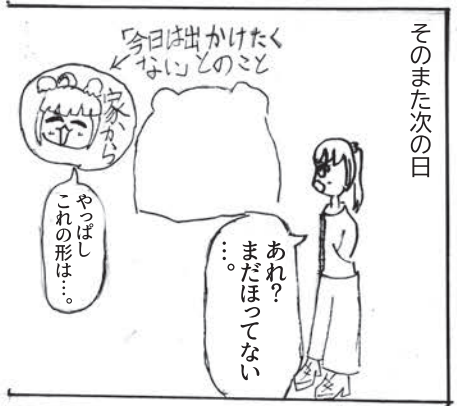 そのまた次の日
「今日は出かけたく
ない」とのこと
家から
あれ？
まだほってない
…。
やっぱし
これの形は…。